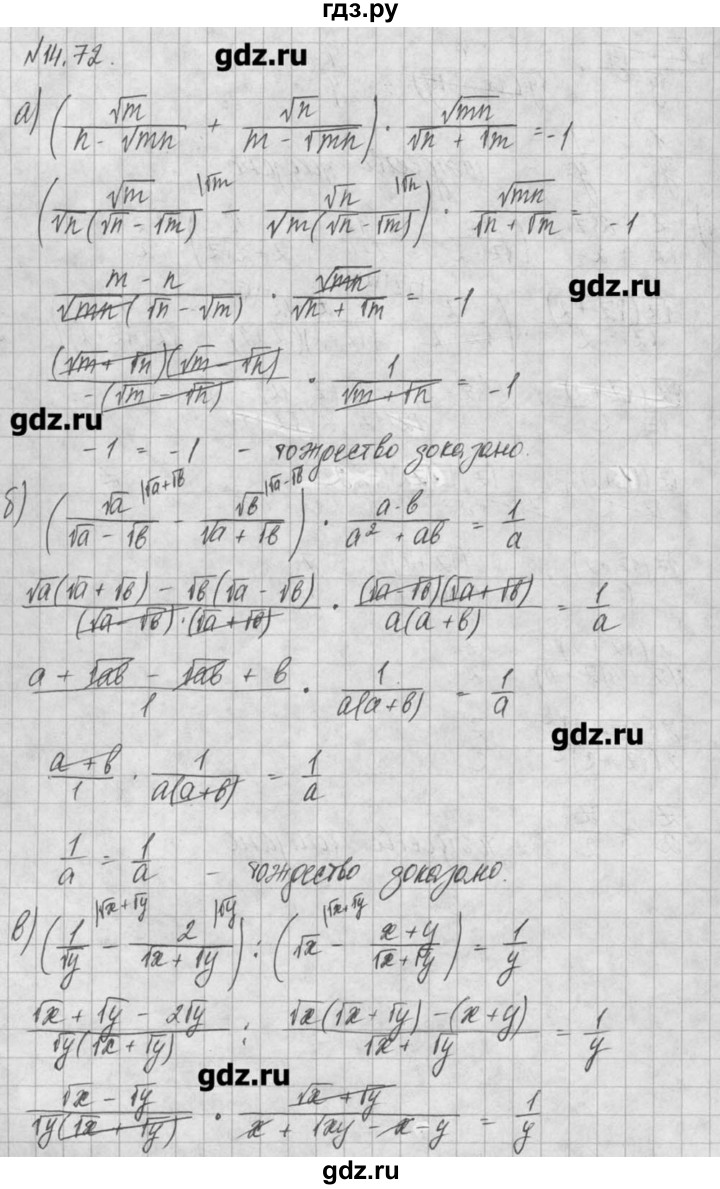 гдз.ру
№14.72.
gdz.ru
а) (√m/(n - √mn) + √n/(m - √mn)) · √mn/(√n + √m) = -1
(√m/(√n(√n - √m)) |√m - √n/(√m(√n - √m)) |√n) · √mn/(√n + √m) = -1
(m - n)/(√mn(√n - √m)) · √mn/(√n + √m) = -1
gdz.ru
(√m + √n)(√m - √n)/(-(√m - √n)) · 1/(√m + √n) = -1
gdz.ru
-1 = -1 - тождество доказано.
б) (√a/(√a - √b) |√a+√b - √b/(√a + √b) |√a-√b) · (a - b)/(a² + ab) = 1/a
(√a(√a + √b) - √b(√a - √b))/((√a - √b)·(√a + √b)) · (√a - √b)(√a + √b)/(a(a + b)) = 1/a
(a + √ab - √ab + b)/1 · 1/(a(a+b)) = 1/a
gdz.ru
(a + b)/1 · 1/(a(a+b)) = 1/a
1/a = 1/a - тождество доказано.
в) (1/√y |√x+√y - 2/(√x + √y) |√y) : (√x |√x+√y - (x + y)/(√x + √y)) = 1/y
(√x + √y - 2√y)/(√y(√x + √y)) : (√x(√x + √y) - (x + y))/(√x + √y) = 1/y
gdz.ru
(√x - √y)/(√y(√x + √y)) · (√x + √y)/(x + √xy - x - y) = 1/y
gdz.ru